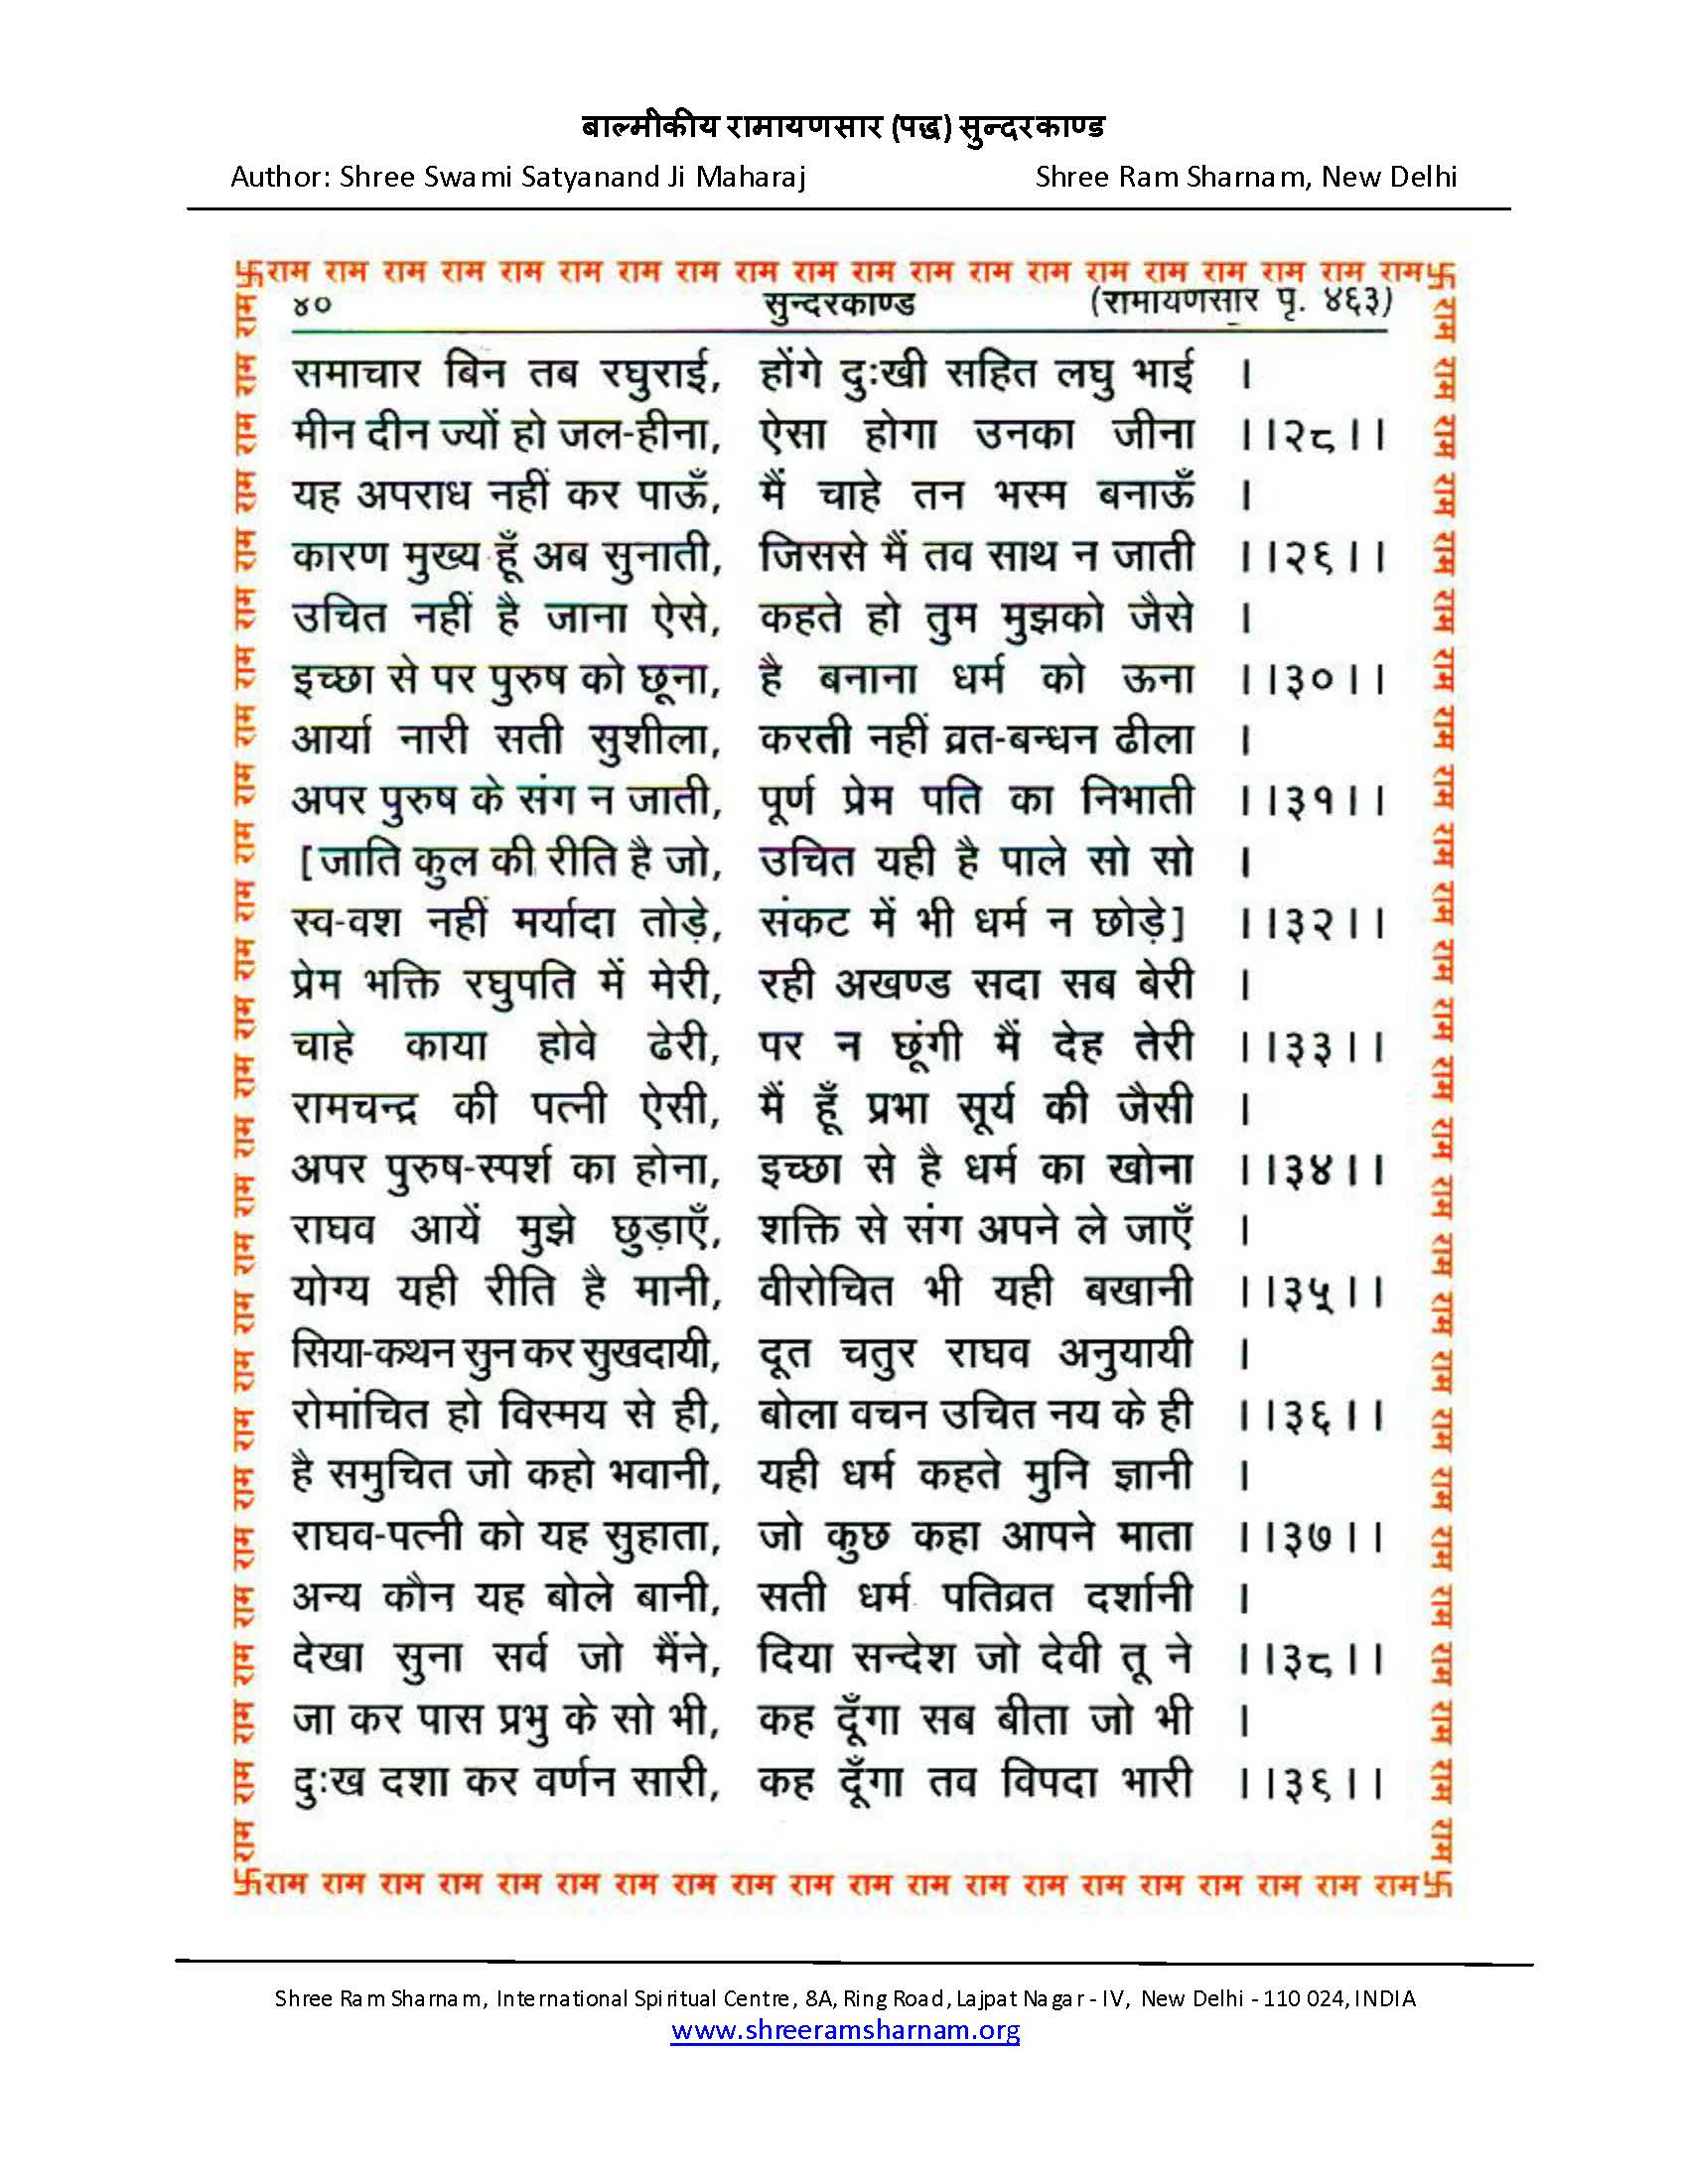 बाल्मीकीय रामायणसार (पद्ध) सुन्दरकाण्ड
Author: Shree Swami Satyanand Ji Maharaj Shree Ram Sharnam, New Delhi
卐राम राम राम राम राम राम राम राम राम राम राम राम राम राम राम राम राम राम राम राम卐
४० सुन्दरकाण्ड (रामायणसार पृ. ४६३)
समाचार बिन तब रघुराई, होंगे दुःखी सहित लघु भाई ।
मीन दीन ज्यों हो जल-हीना, ऐसा होगा उनका जीना ।।२८।।
यह अपराध नहीं कर पाऊँ, मैं चाहे तन भस्म बनाऊँ ।
कारण मुख्य हूँ अब सुनाती, जिससे मैं तव साथ न जाती ।।२९।।
उचित नहीं है जाना ऐसे, कहते हो तुम मुझको जैसे ।
इच्छा से पर पुरुष को छूना, है बनाना धर्म को ऊना ।।३०।।
आर्या नारी सती सुशीला, करती नहीं व्रत-बन्धन ढीला ।
अपर पुरुष के संग न जाती, पूर्ण प्रेम पति का निभाती ।।३१।।
[जाति कुल की रीति है जो, उचित यही है पाले सो सो ।
स्व-वश नहीं मर्यादा तोड़े, संकट में भी धर्म न छोड़े] ।।३२।।
प्रेम भक्ति रघुपति में मेरी, रही अखण्ड सदा सब बेरी ।
चाहे काया होवे ढेरी, पर न छूंगी मैं देह तेरी ।।३३।।
रामचन्द्र की पत्नी ऐसी, मैं हूँ प्रभा सूर्य की जैसी ।
अपर पुरुष-स्पर्श का होना, इच्छा से है धर्म का खोना ।।३४।।
राघव आयें मुझे छुड़ाएँ, शक्ति से संग अपने ले जाएँ ।
योग्य यही रीति है मानी, वीरोचित भी यही बखानी ।।३५।।
सिया-कथन सुन कर सुखदायी, दूत चतुर राघव अनुयायी ।
रोमांचित हो विस्मय से ही, बोला वचन उचित नय के ही ।।३६।।
है समुचित जो कहो भवानी, यही धर्म कहते मुनि ज्ञानी ।
राघव-पत्नी को यह सुहाता, जो कुछ कहा आपने माता ।।३७।।
अन्य कौन यह बोले बानी, सती धर्म पतिव्रत दर्शानी ।
देखा सुना सर्व जो मैंने, दिया सन्देश जो देवी तू ने ।।३८।।
जा कर पास प्रभु के सो भी, कह दूँगा सब बीता जो भी ।
दुःख दशा कर वर्णन सारी, कह दूँगा तव विपदा भारी ।।३९।।
卐राम राम राम राम राम राम राम राम राम राम राम राम राम राम राम राम राम राम राम राम卐
राम राम राम राम राम राम राम राम राम राम राम राम राम राम राम राम राम राम राम राम राम राम राम राम राम राम राम
राम राम राम राम राम राम राम राम राम राम राम राम राम राम राम राम राम राम राम राम राम राम राम राम राम राम राम
Shree Ram Sharnam, International Spiritual Centre, 8A, Ring Road, Lajpat Nagar - IV, New Delhi - 110 024, INDIA
www.shreeramsharnam.org